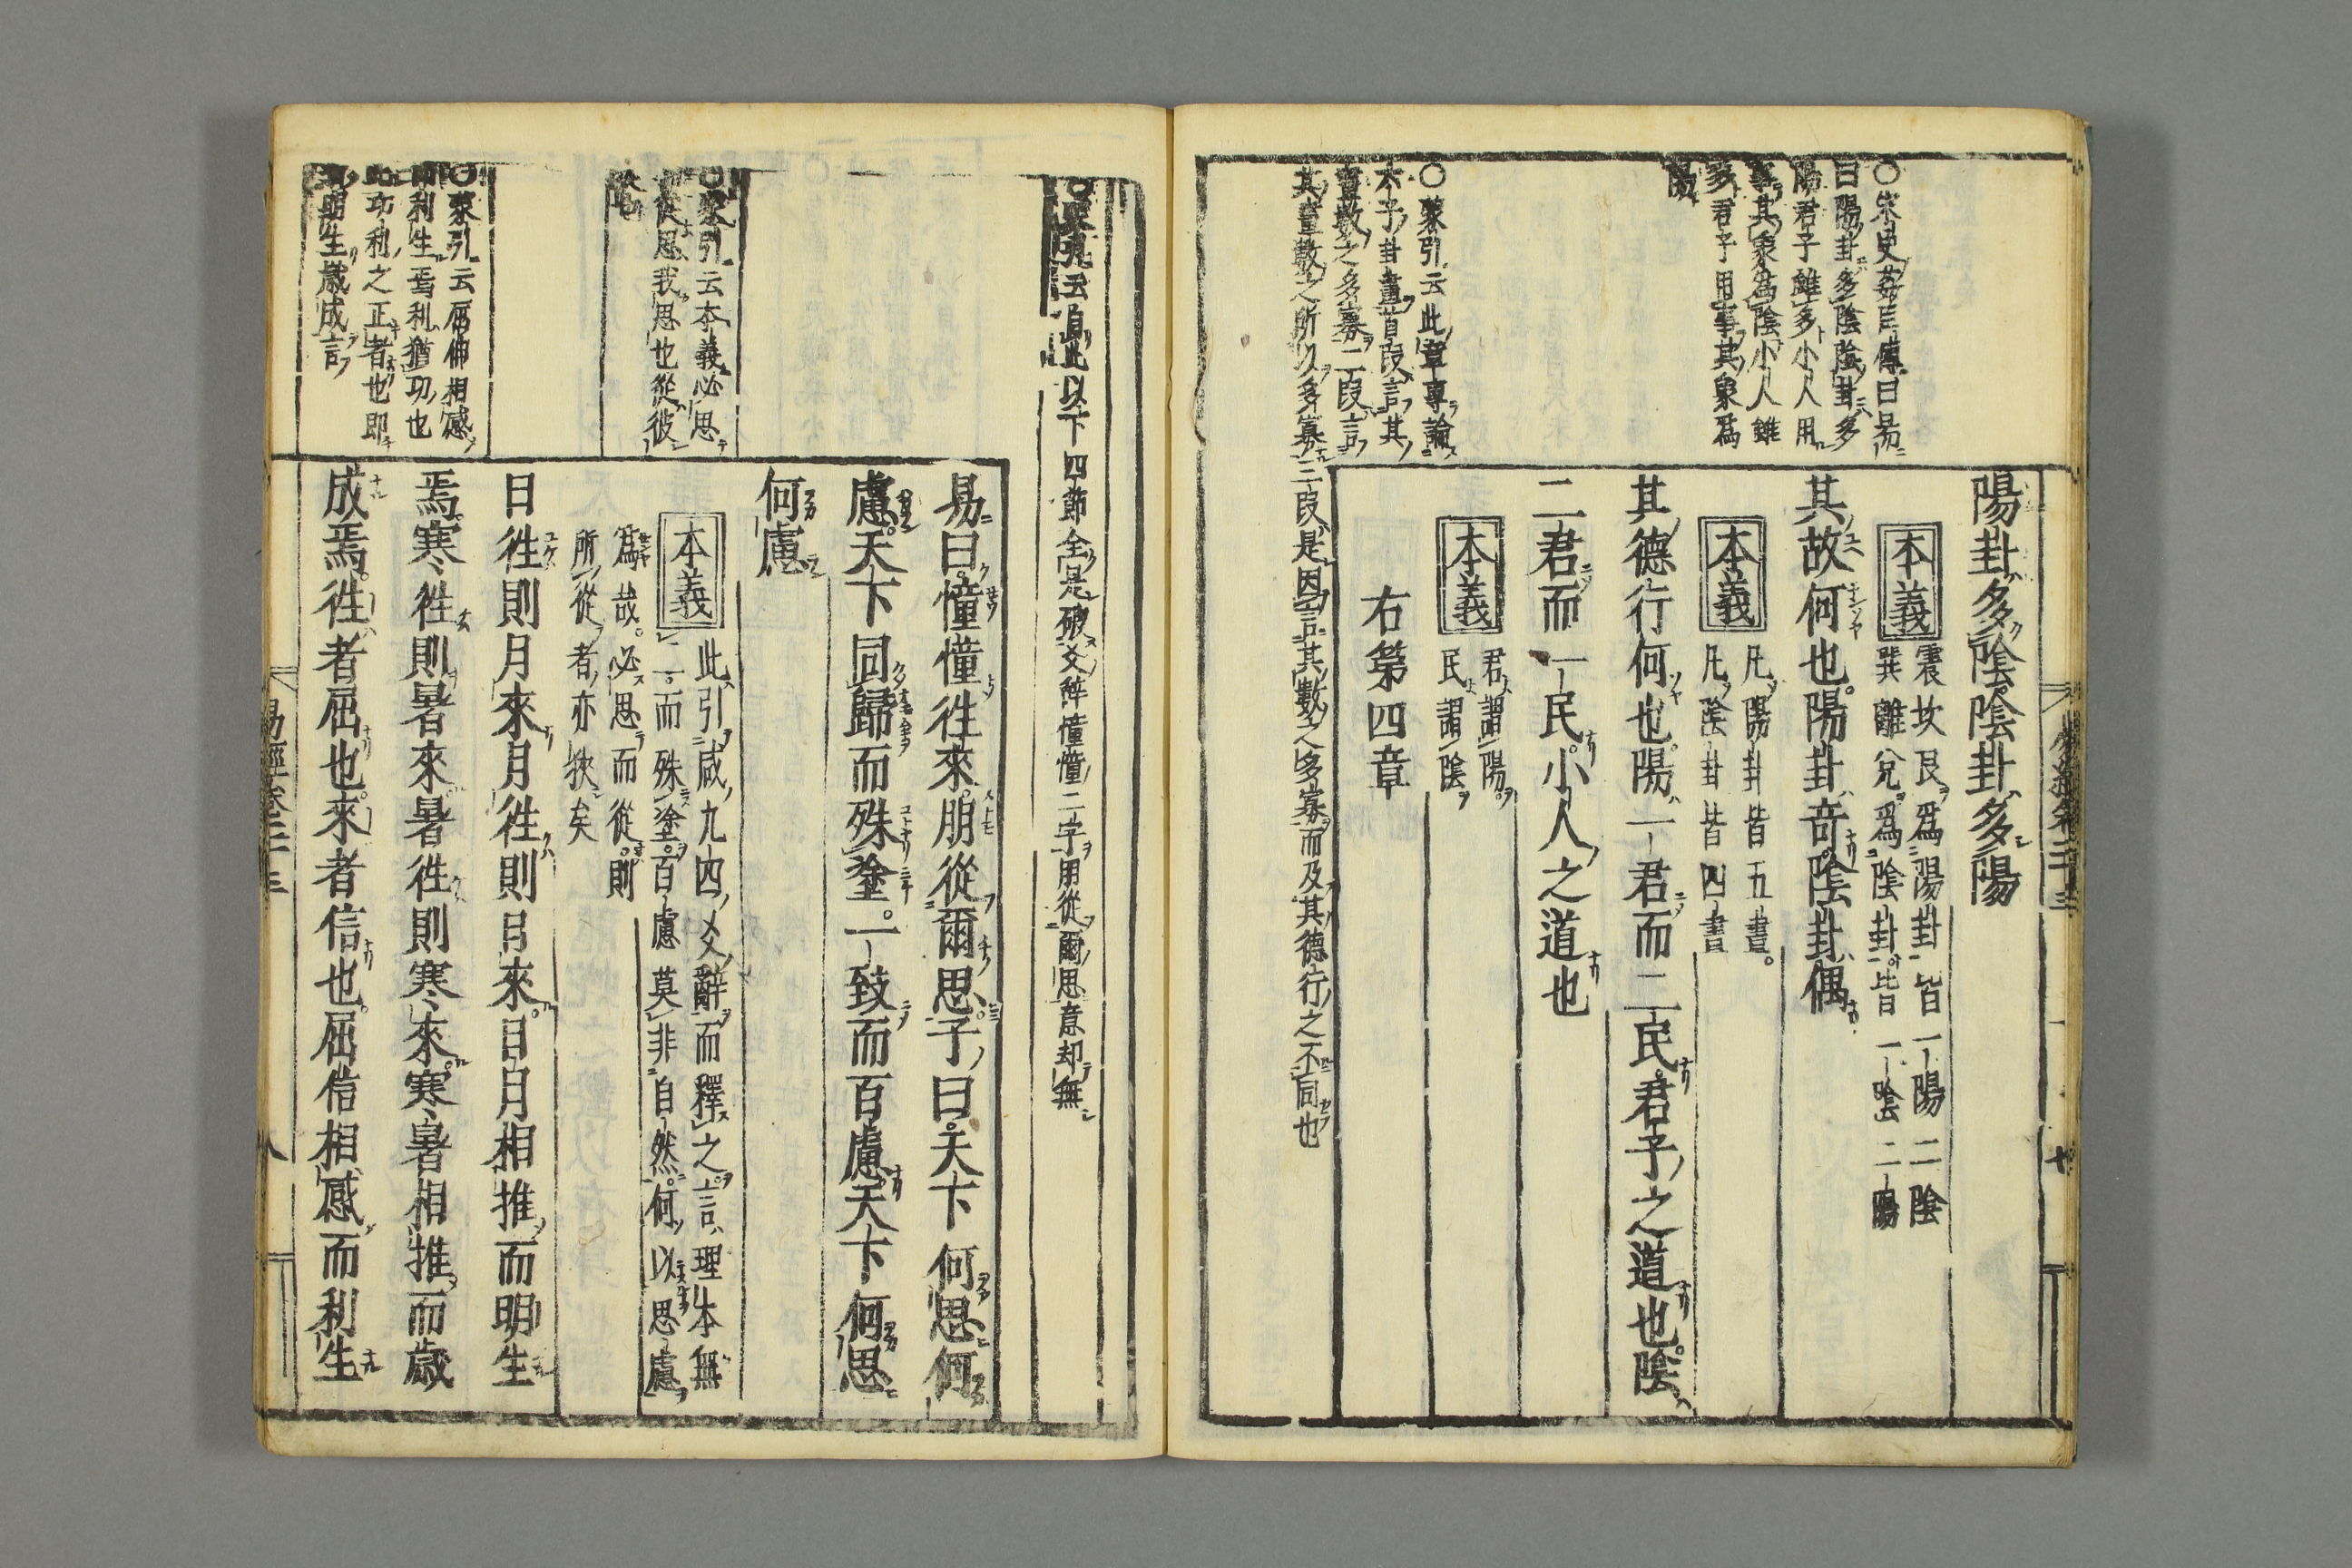 陽卦多陰陰卦多陽
本義
震坎艮爲陽卦皆一陽二陰
巽離兌爲陰卦皆一陰二陽
其故何也陽卦奇陰卦偶
本義
凡陽卦皆五畫
凡陰卦皆四畫
其德行何也陽一君而二民君子之道也陰
二君而一民小人之道也
本義
君謂陽
民謂陰
右第四章
○宋史姦臣傳曰昜
曰陽卦多陰陰卦多
陽君子雖多小人用
事其象爲陰小人雖
多君子用事其象爲
陽
○蒙引云此章專論
六子卦畫首段言其
畫數之多寡二段言
其畫數之所以多寡三段是因言其數之多寡而及其德行之不同也
○蒙引云自此以下四節全是破爻辭憧憧二字用從爾思意却無
易曰憧憧往來朋從爾思子曰天下何思何
慮天下同歸而殊塗一致而百慮天下何思
何慮
本義
此引咸九四爻辭而釋之言理本無
二而殊塗百慮莫非自然何以思慮
爲哉必思而從則
所從者亦狹矣
日往則月來月往則日來日月相推而明生
焉寒往則暑來暑往則寒來寒暑相推而歲
成焉往者屈也來者信也屈信相感而利生
○蒙引云本義必思
從思我思也從彼
○蒙引云屈伸相感
而利生焉利猶功也
此功利之正者也即
明生歲成言
易經卷二十三